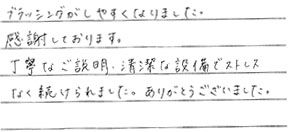 ブラッシングがしやすくなりました。
感謝しております。
丁寧なご説明・清潔な設備でストレス
なく続けられました。ありがとうございました。